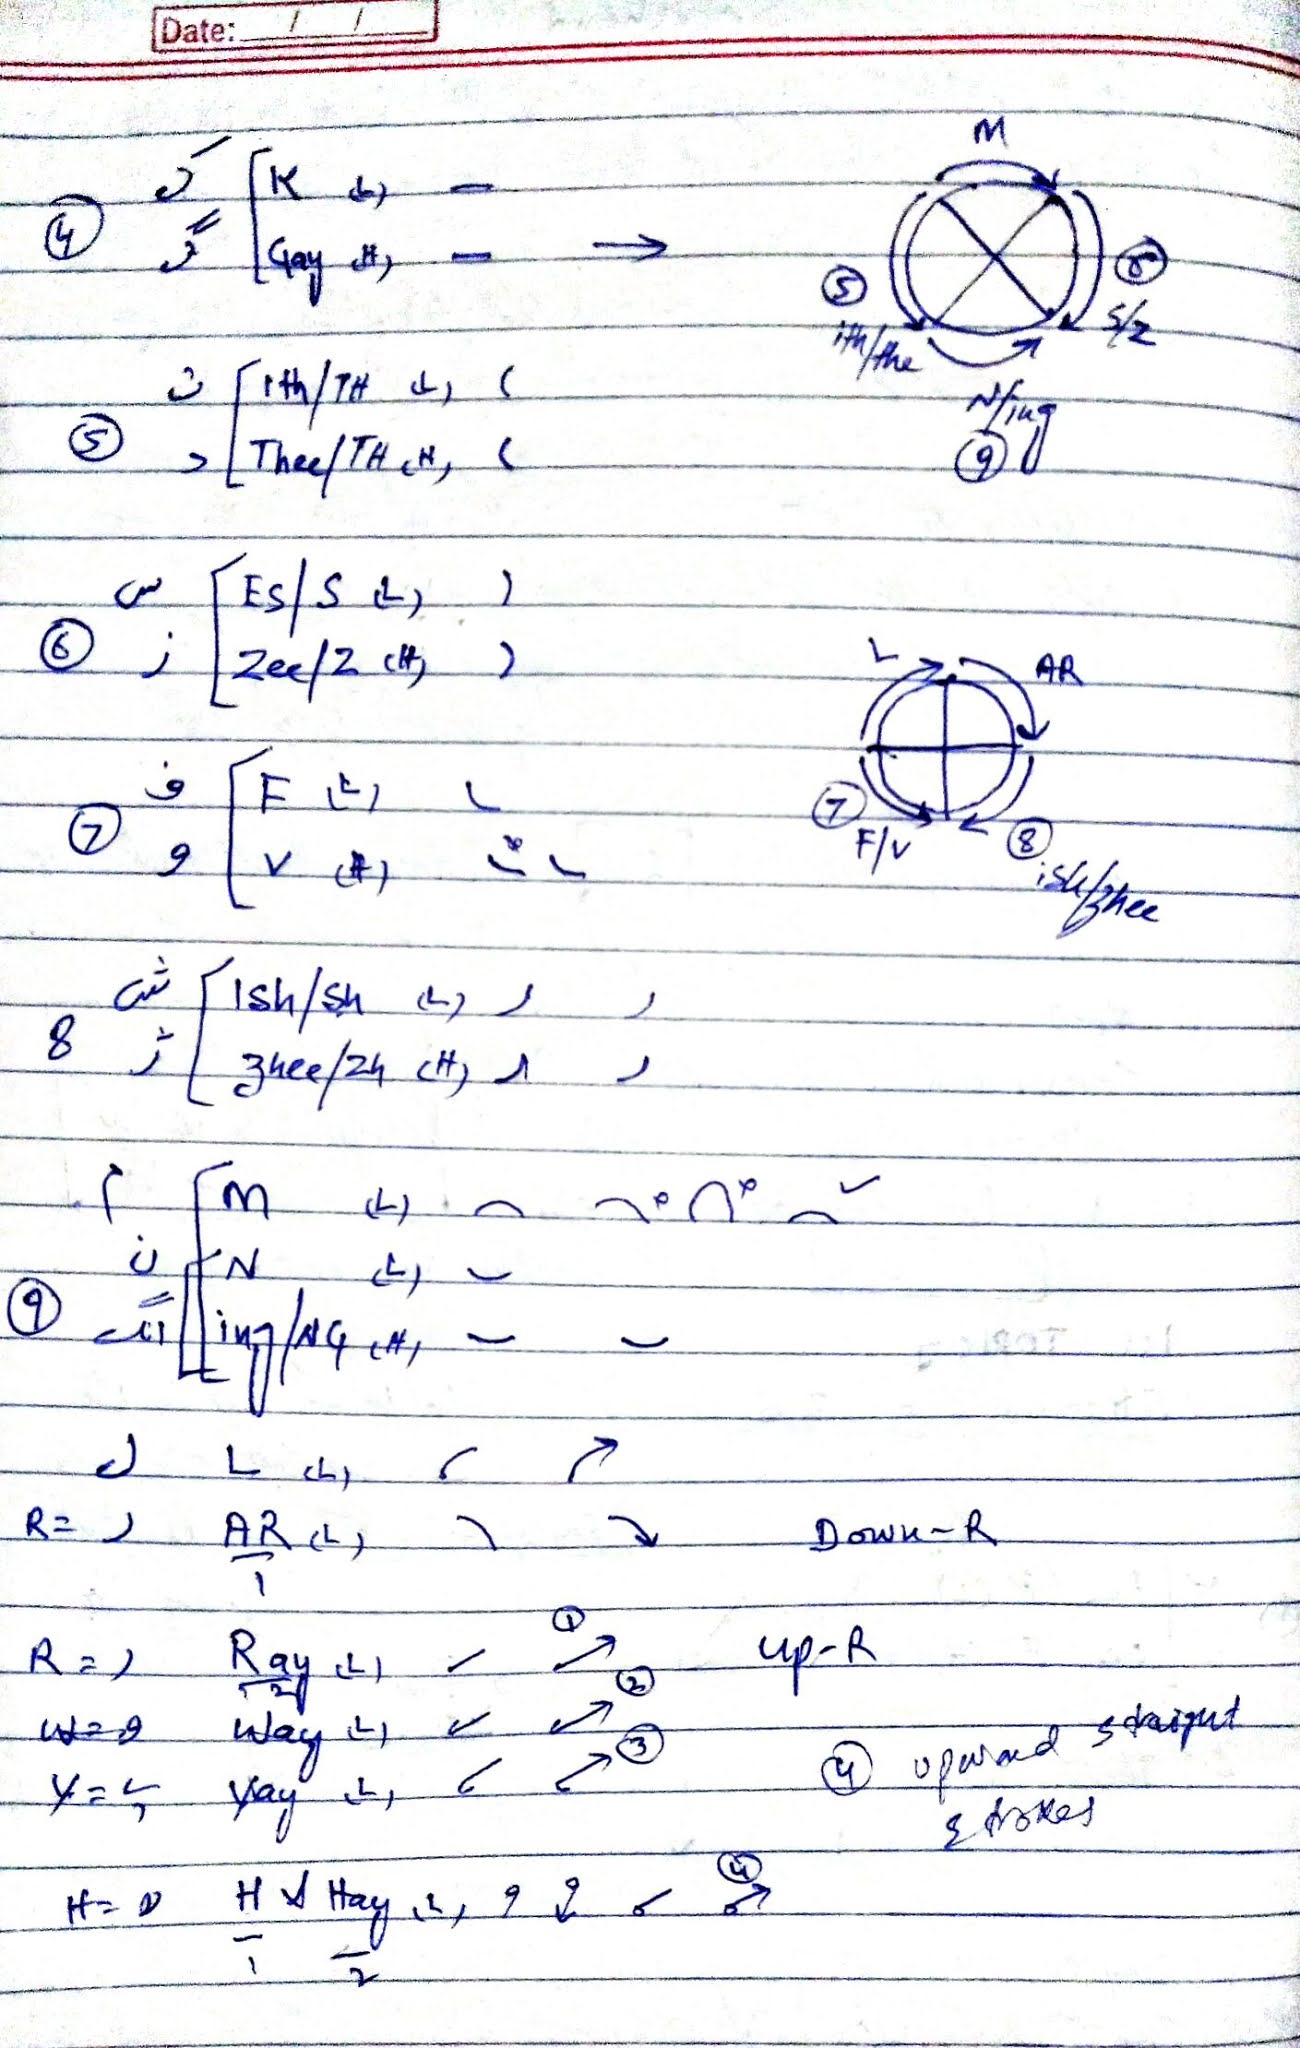 Date: / /
M
ک [ K (L) —
④ گ [ Gay (H) — →
⑤ ith/the
⑥ S/Z
N/ing
⑨
ث [ Ith/TH (L) (
⑤ د [ Thee/TH (H) (
س [ Es/S (L) )
⑥ ز [ Zee/Z (H) )
L AR
⑦ F/V
⑧ ish/zhee
ف [ F (L)
⑦ و [ V (H)
ش [ Ish/Sh (L)
8 ژ [ Zhee/Zh (H)
م [ M (L)
ن [ N (L)
⑨ انگ [ ing/NG (H)
ل L (L)
R = ر AR (L) Down-R
1
R = ر Ray (L) ① Up-R
2
W = و Way (L) ②
Y = ی Yay (L) ③ ④ upward straight
strokes
H = ہ H & Hay (L) ④
1 2